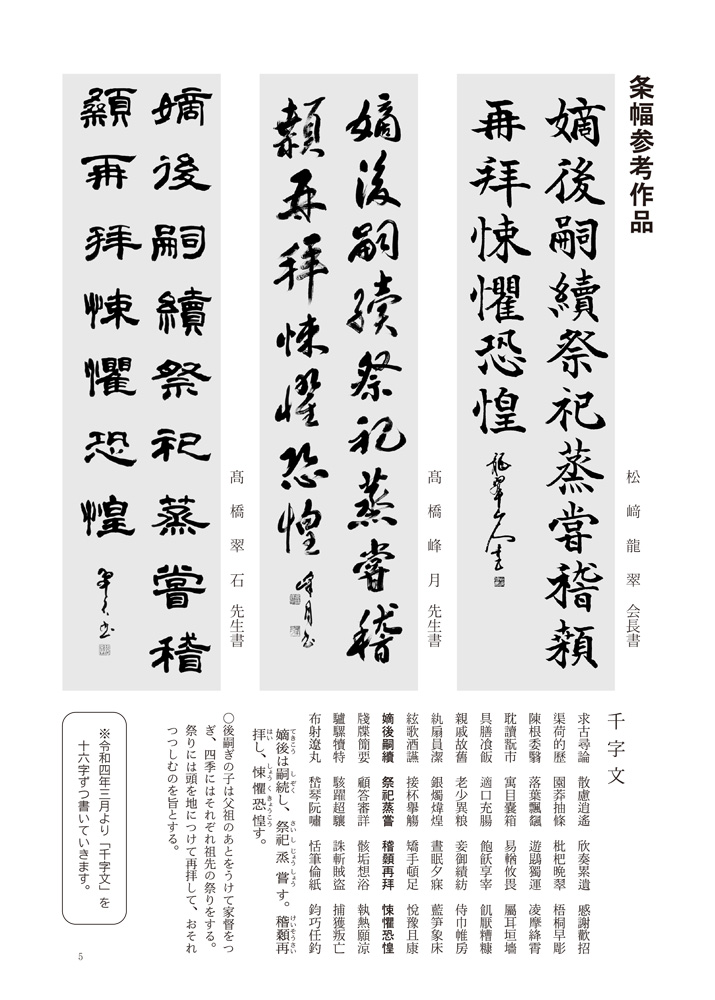 条幅参考作品
嫡後嗣續祭祀蒸甞稽顙
再拜悚懼恐惶
松﨑龍翠会長書
嫡後嗣續祭祀蒸甞稽
顙再拜悚懼恐惶
髙橋峰月先生書
嫡後嗣續祭祀蒸嘗稽
顙再拜悚懼恐惶
髙橋翠石先生書
千字文
求古尋論 散慮逍遙 欣奏累遣 慼謝歡招
渠荷的歴 園莽抽條 枇杷晩翠 梧桐早彫
陳根委翳 落葉飄颻 遊鵾獨運 凌摩絳霄
耽讀翫市 寓目嚢箱 易輶攸畏 屬耳垣墻
具膳飡飯 適口充腸 飽飫享宰 飢厭糟糠
親戚故舊 老少異粮 妾御績紡 侍巾帷房
紈扇員潔 銀燭煒煌 晝眠夕寐 藍笋象床
絃歌酒讌 接杯擧觴 矯手頓足 悅豫且康
嫡後嗣續 祭祀蒸嘗 稽顙再拜 悚懼恐惶
牋牒簡要 顧答審詳 骸垢想浴 執熱願涼
驢騾犢特 駭躍超驤 誅斬賊盗 捕獲叛亡
布射遼丸 嵆琴阮嘯 恬筆倫紙 鈞巧任釣
嫡後は嗣続し、祭祀蒸嘗す。稽顙再
拝し、悚懼恐惶す。
〇後嗣ぎの子は父祖のあとをうけて家督をつ
ぎ、四季にはそれぞれ祖先の祭りをする。
祭りには頭を地につけて再拝して、おそれ
つつしむのを旨とする。
※令和四年三月より「千字文」を
十六字ずつ書いていきます。
5